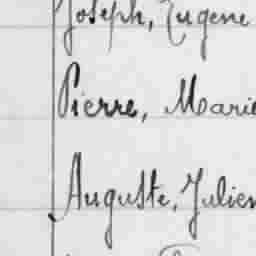 Joseph, Eugene
Pierre, Marie
Auguste, Julien